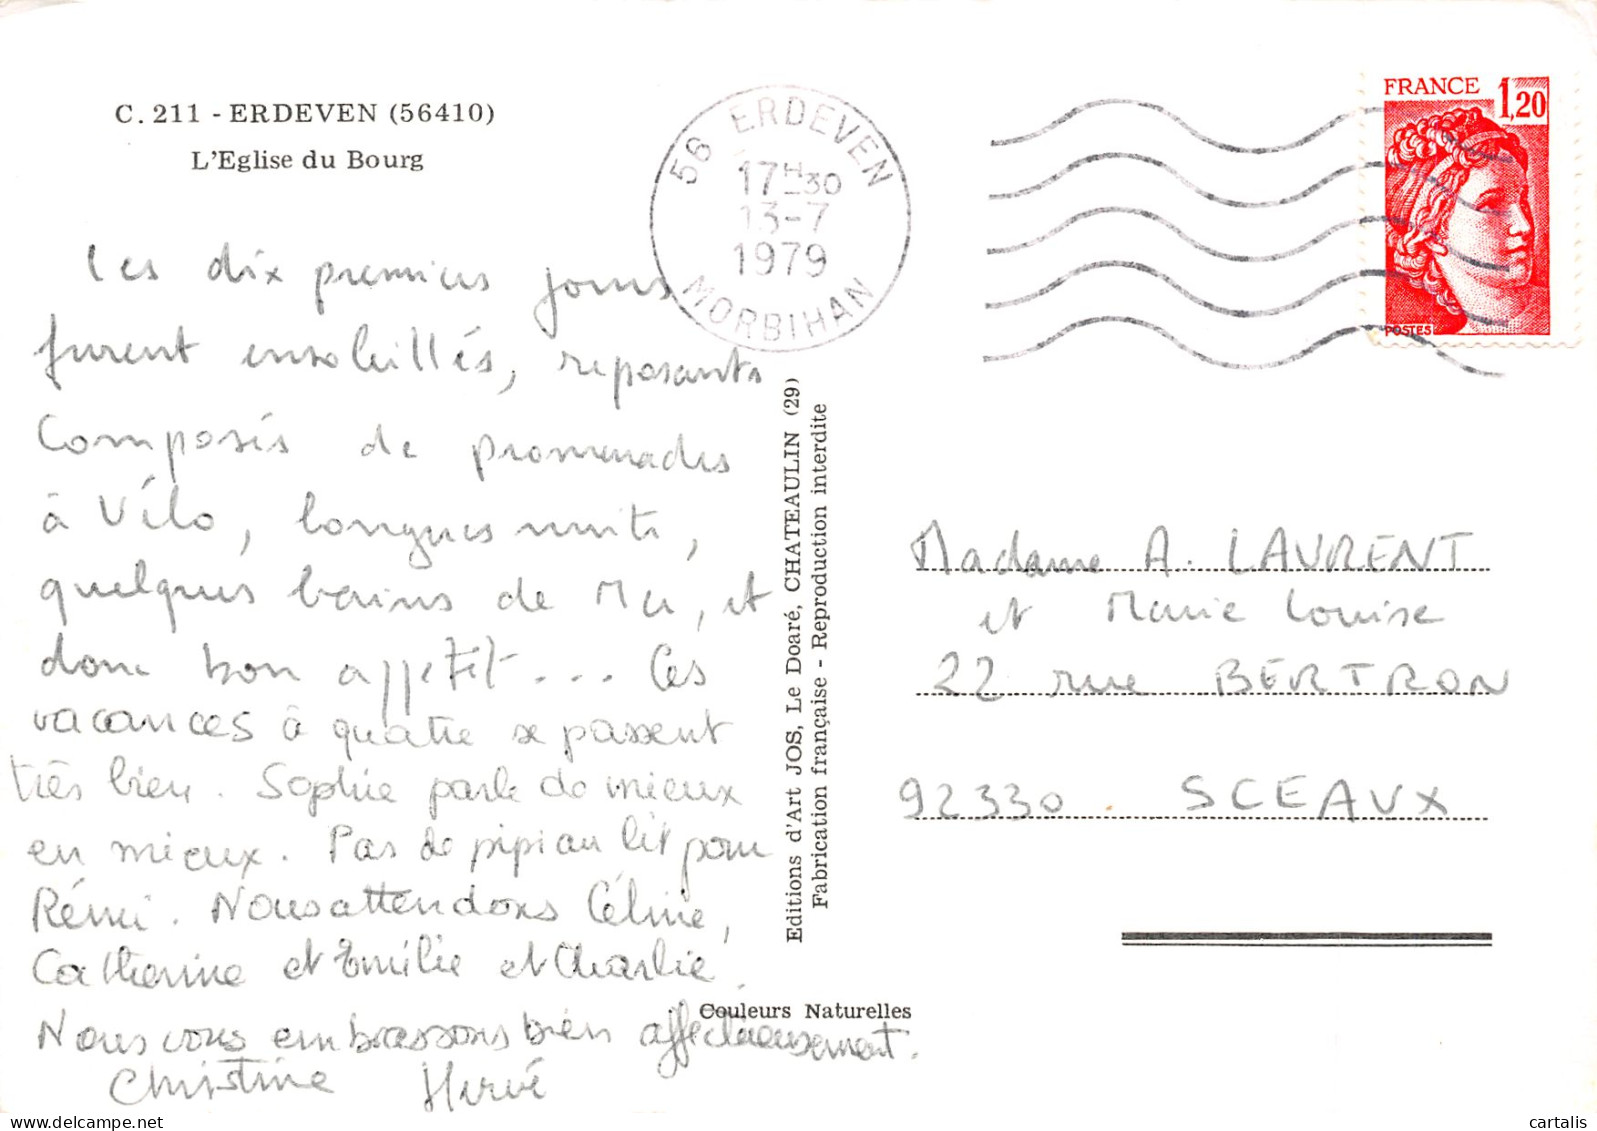 C. 211 - ERDEVEN (56410)
L'Eglise du Bourg
56 ERDEVEN
17H30
13-7
1979
MORBIHAN
FRANCE
1,20
POSTES
Les dix premiers jours
furent ensoleillés, reposants
Composés de promenades
à Vélo, longues nuits,
quelques bains de Mer, et
donc bon appetit ... Ces
vacances à quatre se passent
très bien. Sophie parle de mieux
en mieux. Pas de pipi au lit pour
Rémi. Nous attendons Céline,
Catherine et Emilie et Charlie
Nous vous embrassons bien affectueusement.
Christine Hervé
Editions d'Art JOS, Le Doaré, CHATEAULIN (29)
Fabrication française - Reproduction interdite
Couleurs Naturelles
Madame A. LAURENT
et Marie Louise
22 rue BERTRON
92330 SCEAUX
cartalis